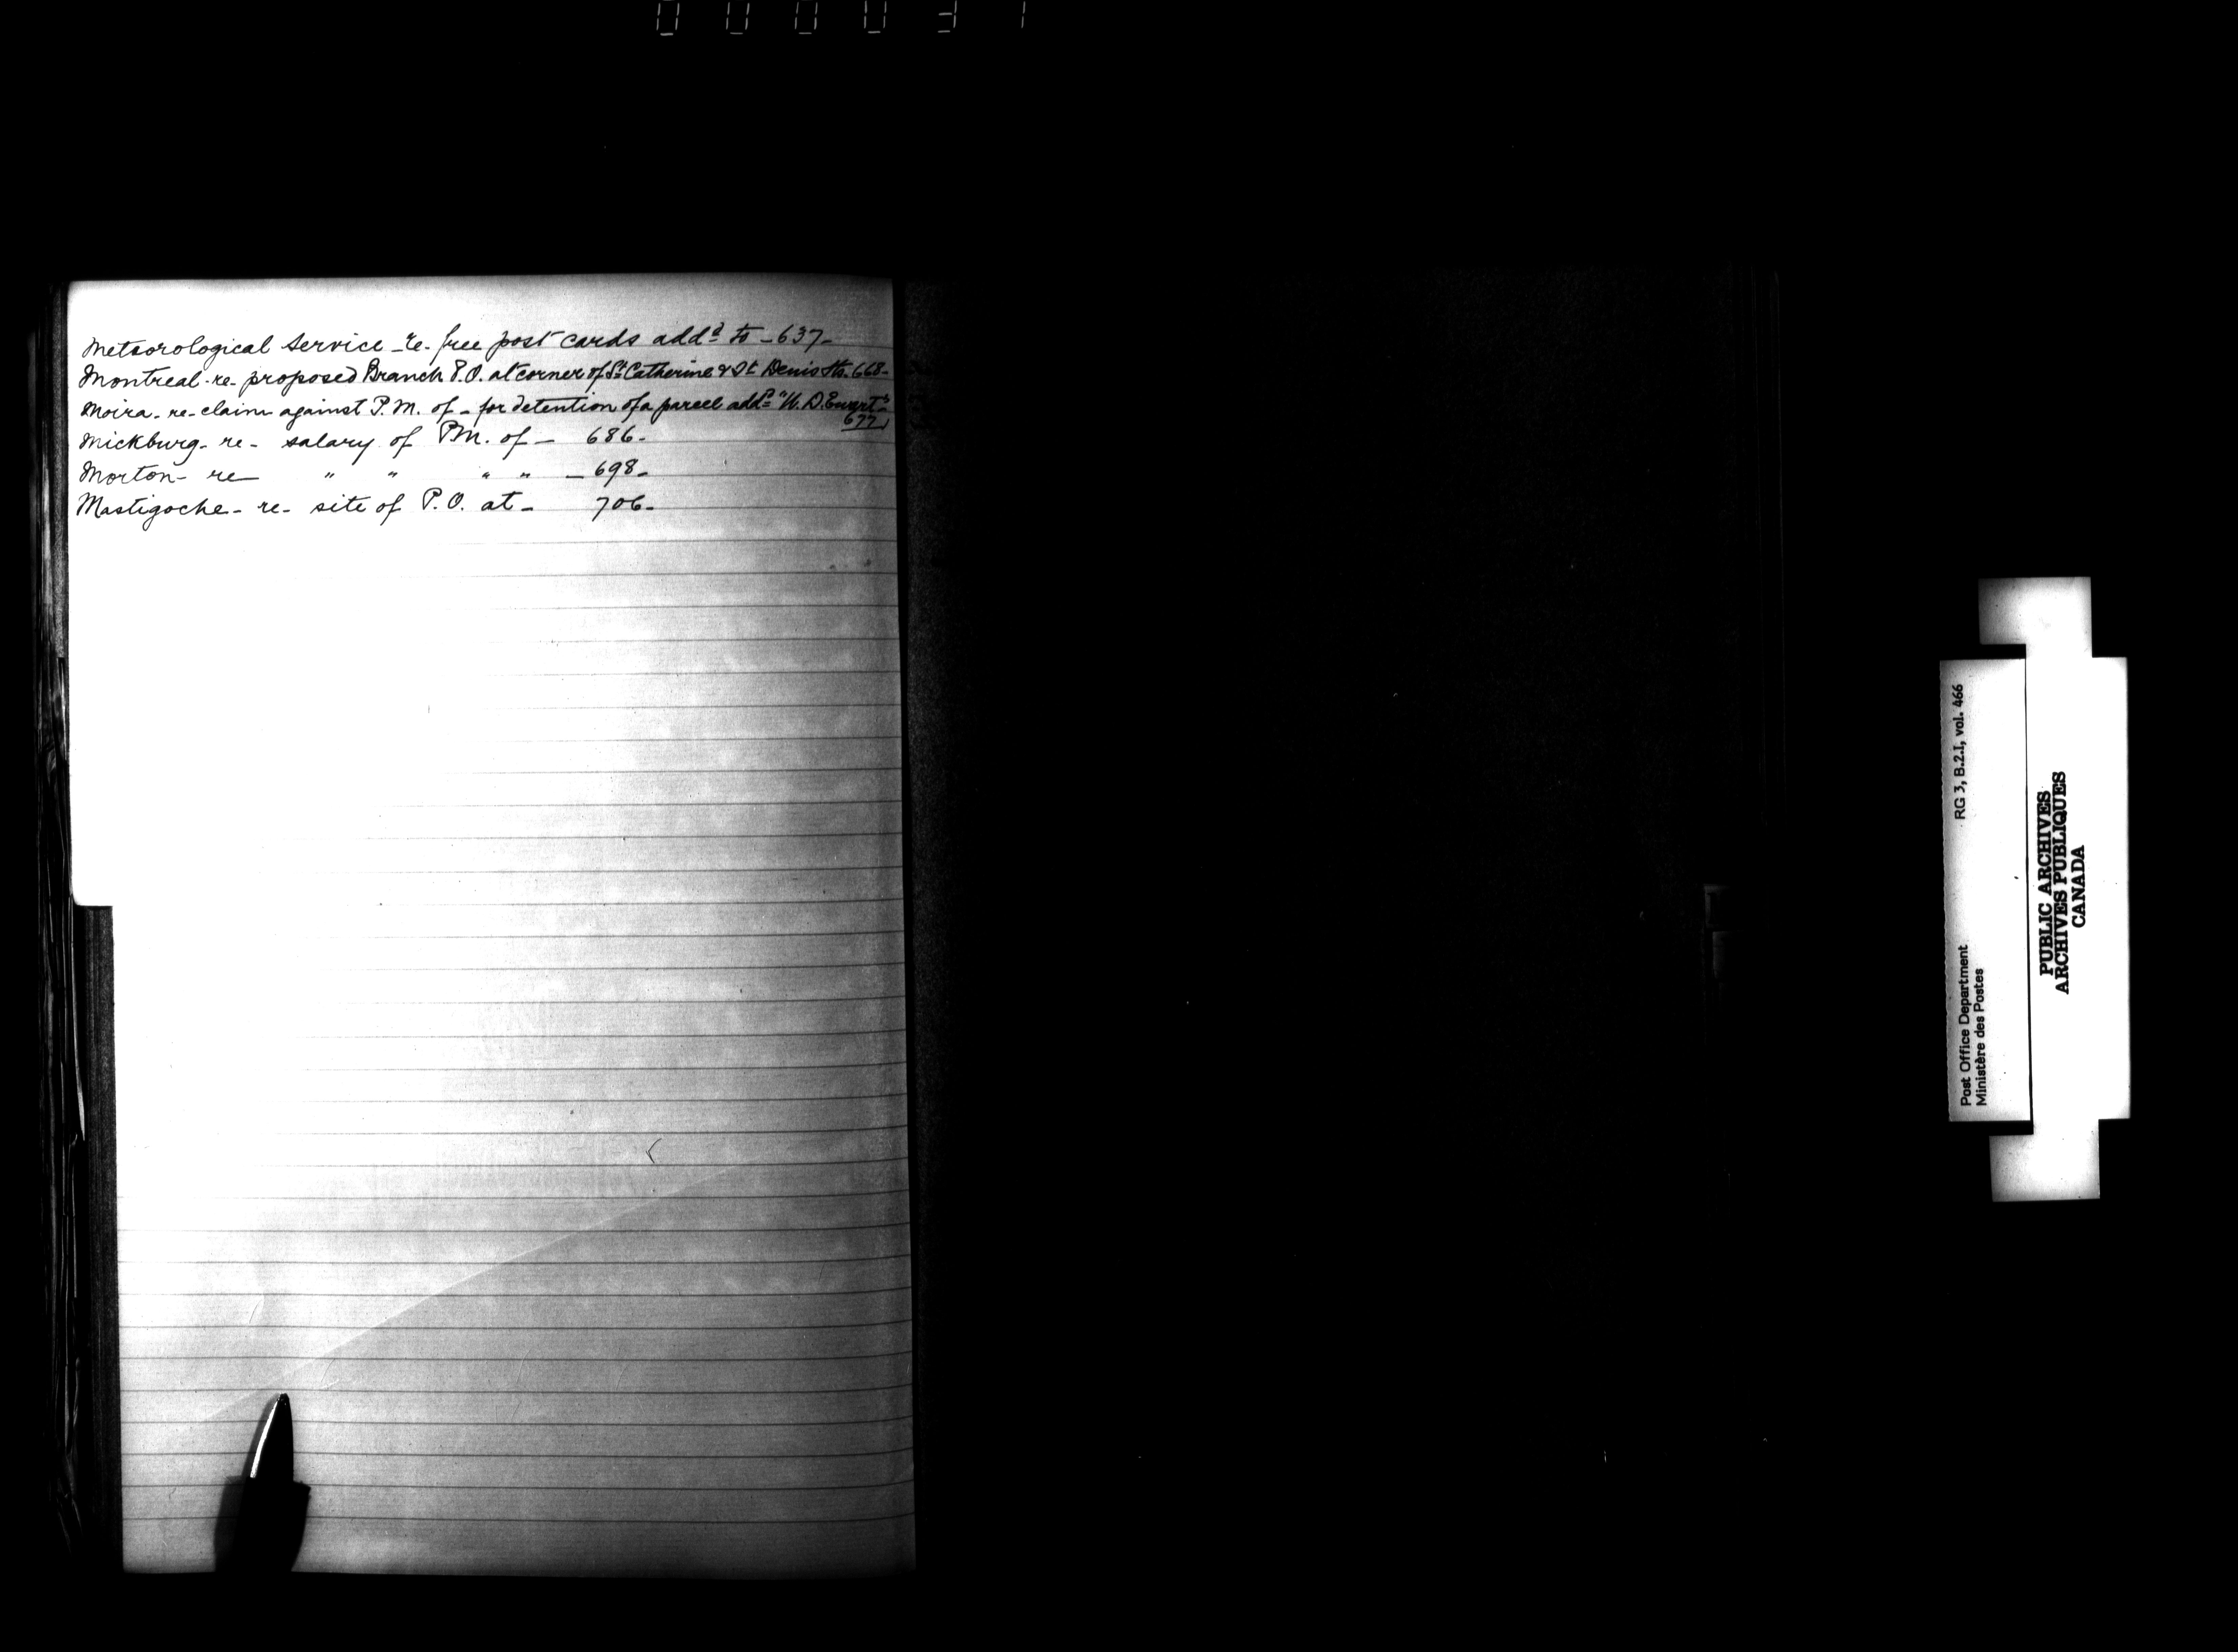 000031
Meteorological Service - re - free post cards addd to - 637 -
Montreal - re - proposed Branch P.O. at corner of St Catherine & St Denis Sts. 668 -
Moira - re - claim against P.M. of - for detention of a parcel addd "W. D. Ewart" -
677
Mickburg - re - salary of PM. of - 686 -
Morton - re " " " " - 698 -
Mastigoche - re - site of P.O. at - 706 -
Post Office Department RG 3, B.2.I, vol. 466
Ministère des Postes
PUBLIC ARCHIVES
ARCHIVES PUBLIQUES
CANADA